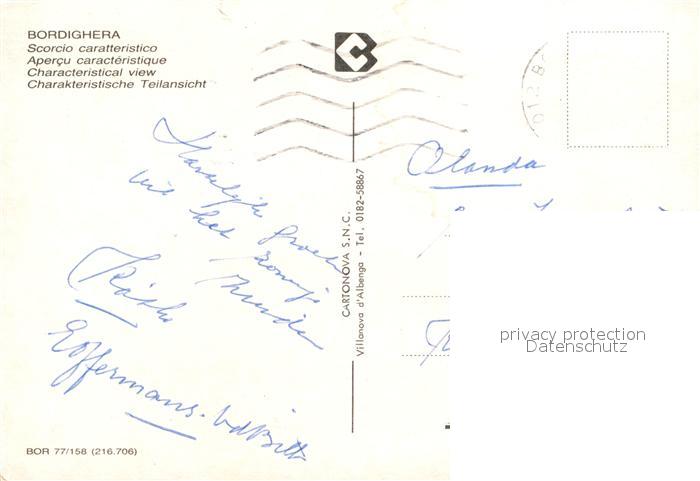 BORDIGHERA
Scorcio caratteristico
Aperçu caractéristique
Characteristical view
Charakteristische Teilansicht
Olanda
Hartelijke groeten
uit het zonnige
Zuiden
CARTONOVA S.N.C.
Villanova d'Albenga - Tel. 0182-58867
privacy protection
Datenschutz
BOR 77/158 (216.706)